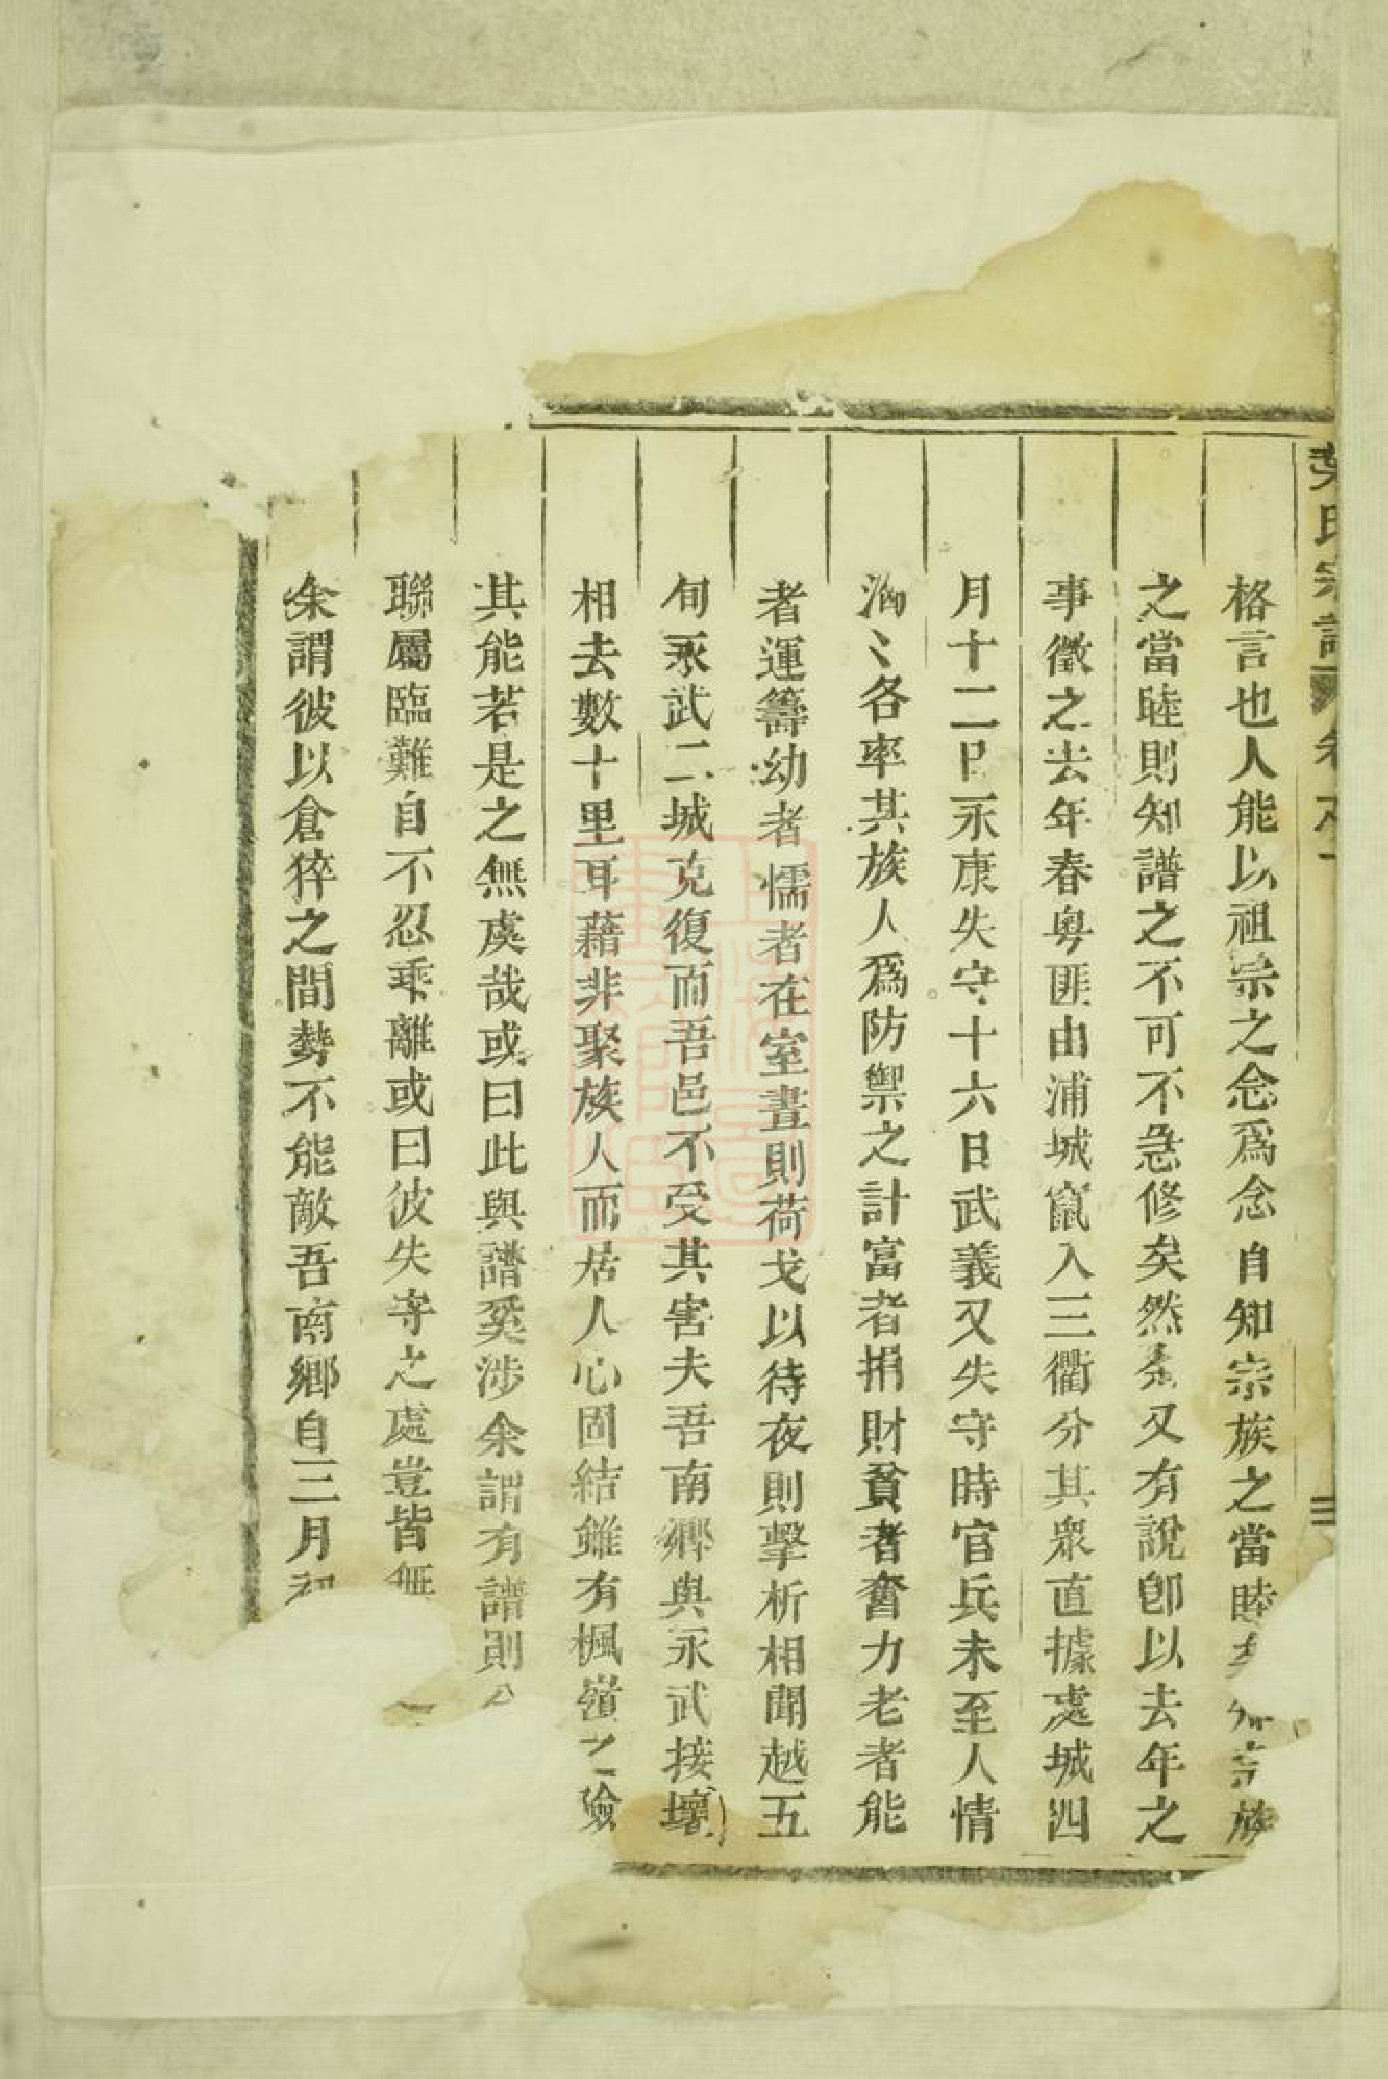 氏宗譜 卷之一
格言也人能以祖宗之念爲念自知宗族之當睦矣知宗族
之當睦則知譜之不可不急修矣然余又有說卽以去年之
事徵之去年春粵匪由浦城竄入三衢分其眾直據處城四
月十二日永康失守十六日武義又失守時官兵未至人情
洶〻各率其族人爲防禦之計富者捐財貧者奮力老者能
者運籌幼者懦者在室晝則荷戈以待夜則擊柝相聞越五
旬永武二城克復而吾邑不受其害夫吾南鄉與永武接壤
相去數十里耳藉非聚族人而居人心固結雖有楓嶺之險
其能若是之無虞哉或曰此與譜奚涉余謂有譜則
聯屬臨難自不忍乖離或曰彼失守之處豈皆無
余謂彼以倉猝之間勢不能敵吾南鄉自三月初